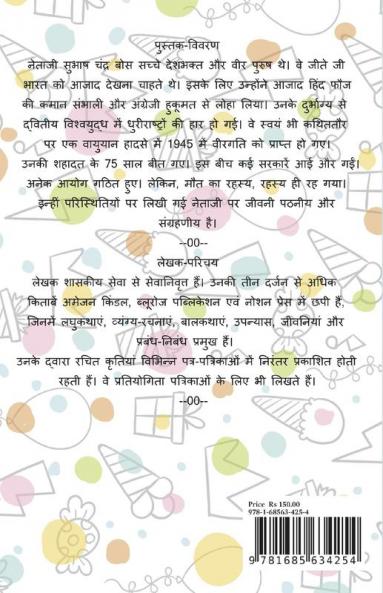 पुस्तक-विवरण
नेताजी सुभाष चंद्र बोस सच्चे देशभक्त और वीर पुरुष थे। वे जीते जी
भारत को आजाद देखना चाहते थे। इसके लिए उन्होंने आजाद हिंद फौज
की कमान संभाली और अंग्रेजी हुकूमत से लोहा लिया। उनके दुर्भाग्य से
द्वितीय विश्वयुद्ध में धुरीराष्ट्रों की हार हो गई। वे स्वयं भी कथिततौर
पर एक वायुयान हादसे में 1945 में वीरगति को प्राप्त हो गए।
उनकी शहादत के 75 साल बीत गए। इस बीच कई सरकारें आईं और गईं।
अनेक आयोग गठित हुए। लेकिन, मौत का रहस्य, रहस्य ही रह गया।
इन्हीं परिस्थितियों पर लिखी गई नेताजी पर जीवनी पठनीय और
संग्रहणीय है।
--00--
लेखक-परिचय
लेखक शासकीय सेवा से सेवानिवृत हैं। उनकी तीन दर्जन से अधिक
किताबें अमेजन किंडल, ब्लूरोज पब्लिकेशन एवं नोशन प्रेस में छपी हैं,
जिनमें लघुकथाएं, व्यंग्य-रचनाएं, बालकथाएं, उपन्यास, जीवनियां और
प्रबंध-निबंध प्रमुख हैं।
उनके द्वारा रचित कृतियां विभिन्न पत्र-पत्रिकाओं में निरंतर प्रकाशित होती
रहती हैं। वे प्रतियोगिता पत्रिकाओं के लिए भी लिखते हैं।
--00--
Price Rs 150.00
978-1-68563-425-4
9 781685 634254